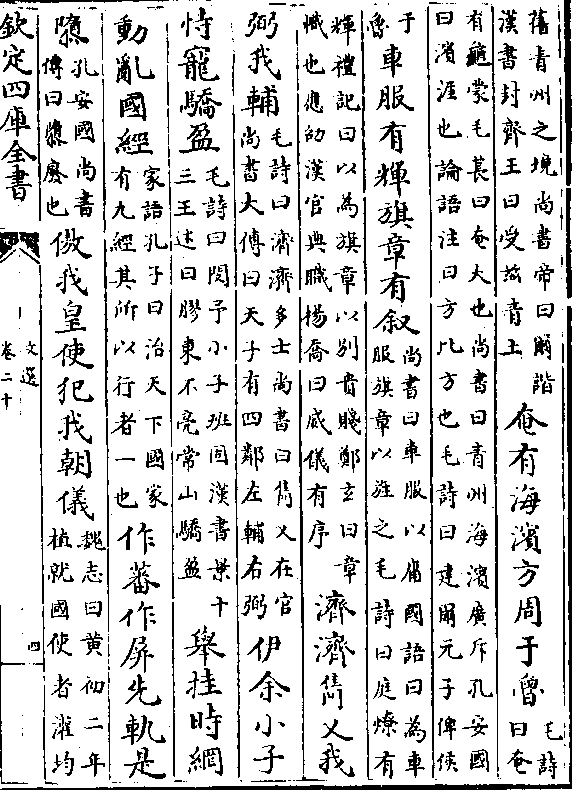 舊青州之境尚書帝曰爾諧
漢書封齊王曰受兹青土
奄有海濱方周于魯
毛詩
曰奄
有龜蒙毛萇曰奄大也尚書曰青州海濱廣斥孔安國
曰濱涯也論語注曰方比方也毛詩曰建爾元子俾侯
于
魯
車服有輝旗章有叙
尚書曰車服以庸國語曰為車
服旗章以旌之毛詩曰庭燎有
輝禮記曰以為旗章以別貴賤鄭玄曰章
幟也應劭漢官典職楊喬曰威儀有序
濟濟儁乂我
弼我輔
毛詩曰濟濟多士尚書曰儁乂在官
尚書大傳曰天子有四鄰左輔右弼
伊余小子
恃寵驕盈
毛詩曰閔予小子班固漢書景十
三王述曰膠東不亮常山驕盈
舉挂時網
動亂國經
家語孔子曰治天下國家
有九經其所以行者一也
作蕃作屏先軌是
隳
孔安國尚書
傳曰隳廢也
傲我皇使犯我朝儀
魏志曰黄初二年
植就國使者灌均
欽定四庫全書
文選
卷二十
四